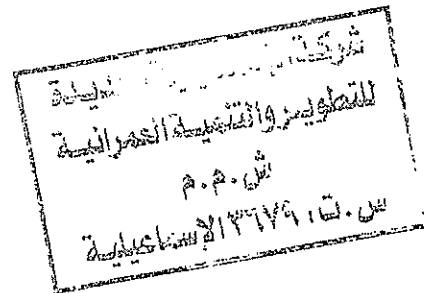 شركة الجديدة
للتطوير والتنمية العمرانية
ش.م.م
س.ت. ٣٦٧٩ الإسماعيلية